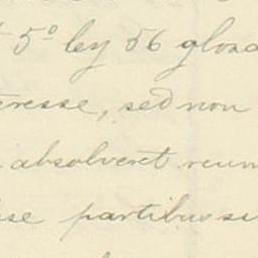 5º ley 56 glosa
teresse, sed non
absolveret reum
se partibus su